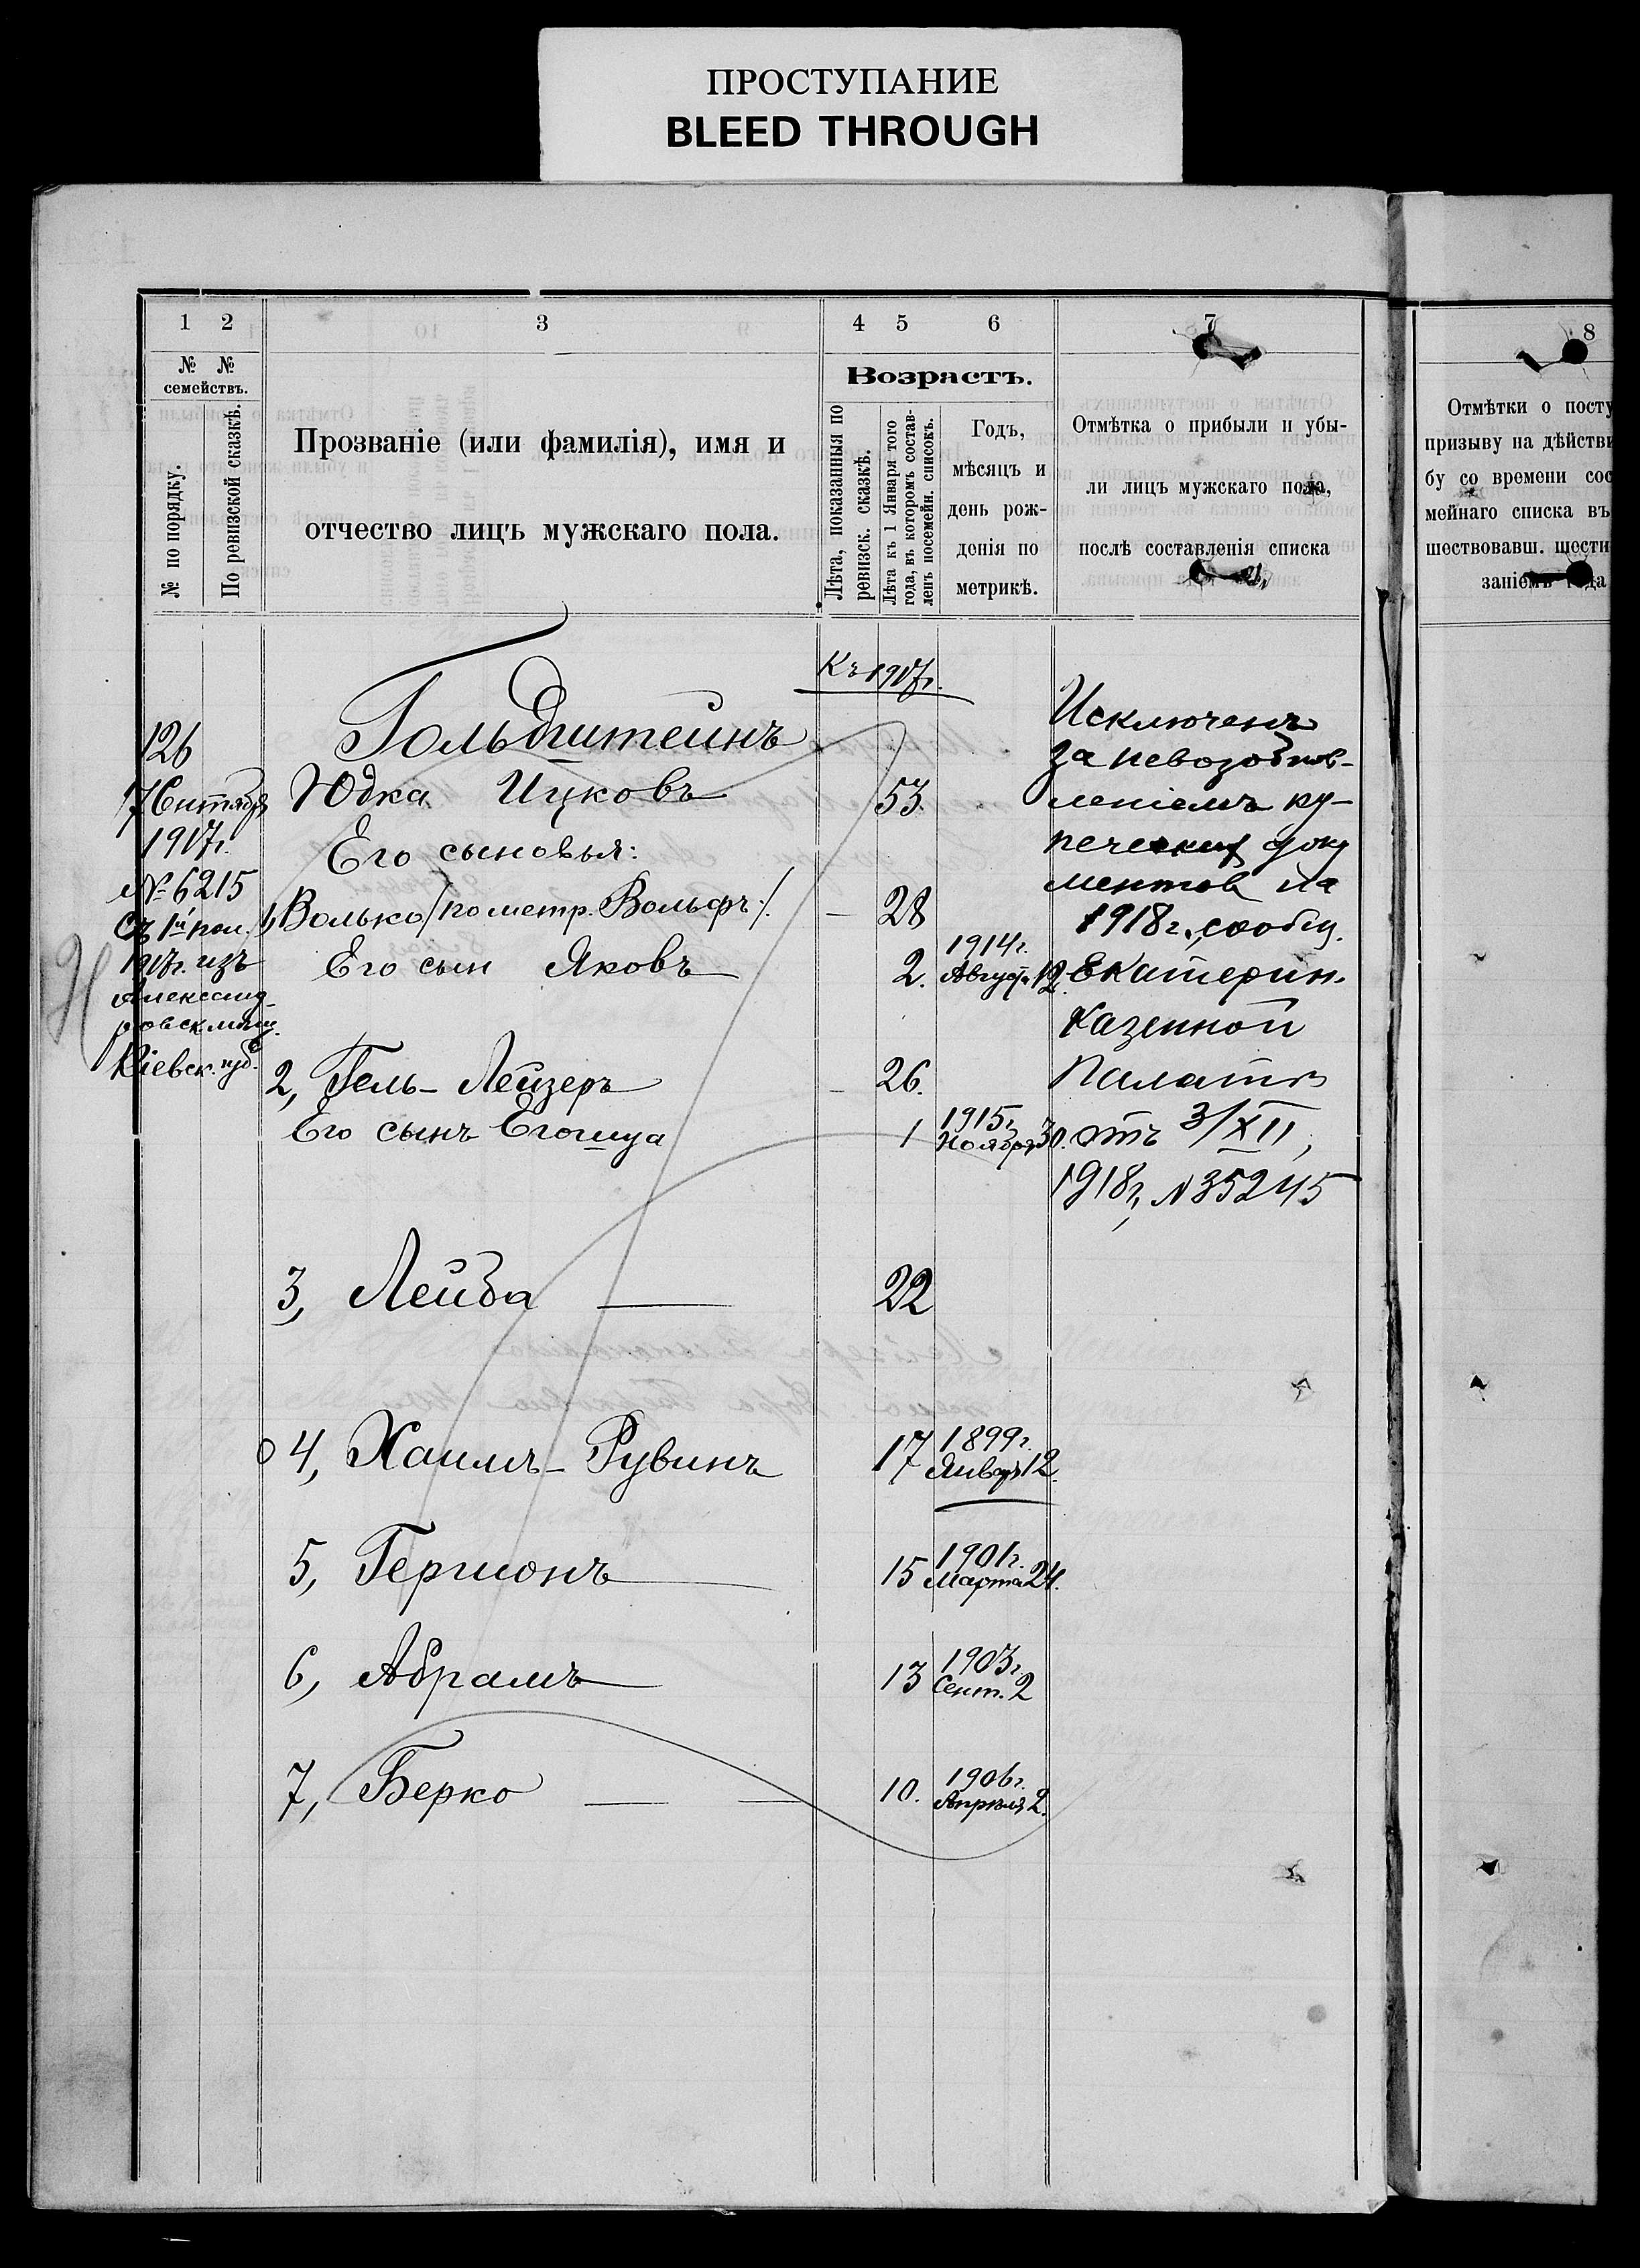 ПРОСТУПАНИЕ
BLEED THROUGH
1 2 3 4 5 6 7
№ № семействъ.
№ по порядку.
По ревизской сказкѣ.
Прозваніе (или фамилія), имя и
отчество лицъ мужскаго пола.
Возрастъ.
Лѣта, показанныя по
ревизск. сказкѣ.
Лѣта къ 1 Января того
года, въ которомъ состав-
ленъ посемейн. списокъ.
Годъ,
мѣсяцъ и
день рож-
денія по
метрикѣ.
Отмѣтка о прибыли и убы-
ли лицъ мужскаго пола,
послѣ составленія списка
8
Отмѣтки о посту
призыву на дѣйстви
бу со времени сос
мейнаго списка въ
шествовавш. шести
заніемъ года
Къ 1917г.
126
7 Сентября
1917г.
№ 6215
Съ 1й пол.
1917г. изъ
Александ-
ровск. мѣщ.
Кіевск. губ.
Гольдштейнъ
Юдка Ицковъ 53.
Его сыновья:
1, Волько /по метр. Вольфъ/. 28
Его сын Яковъ 2. 1914г. Август. 12.
2, Гель-Лейзеръ 26.
Его сынъ Егошуа 1 1915г. Ноября 30.
3, Лейба 22
4, Хаимъ-Рувинъ 17 1899г. Январ. 12.
5, Гершонъ 15 1901г. Марта 24.
6, Абрамъ 13 1903г. Сент. 2
7, Берко 10. 1906г. Апрѣля 2.
Исключенъ
за невозобнов-
леніемъ ку-
печеских доку
ментов на
1918г., сообщ.
Екатерин.
Казенной
Палаты
отъ 3/XII,
1918г. № 35245